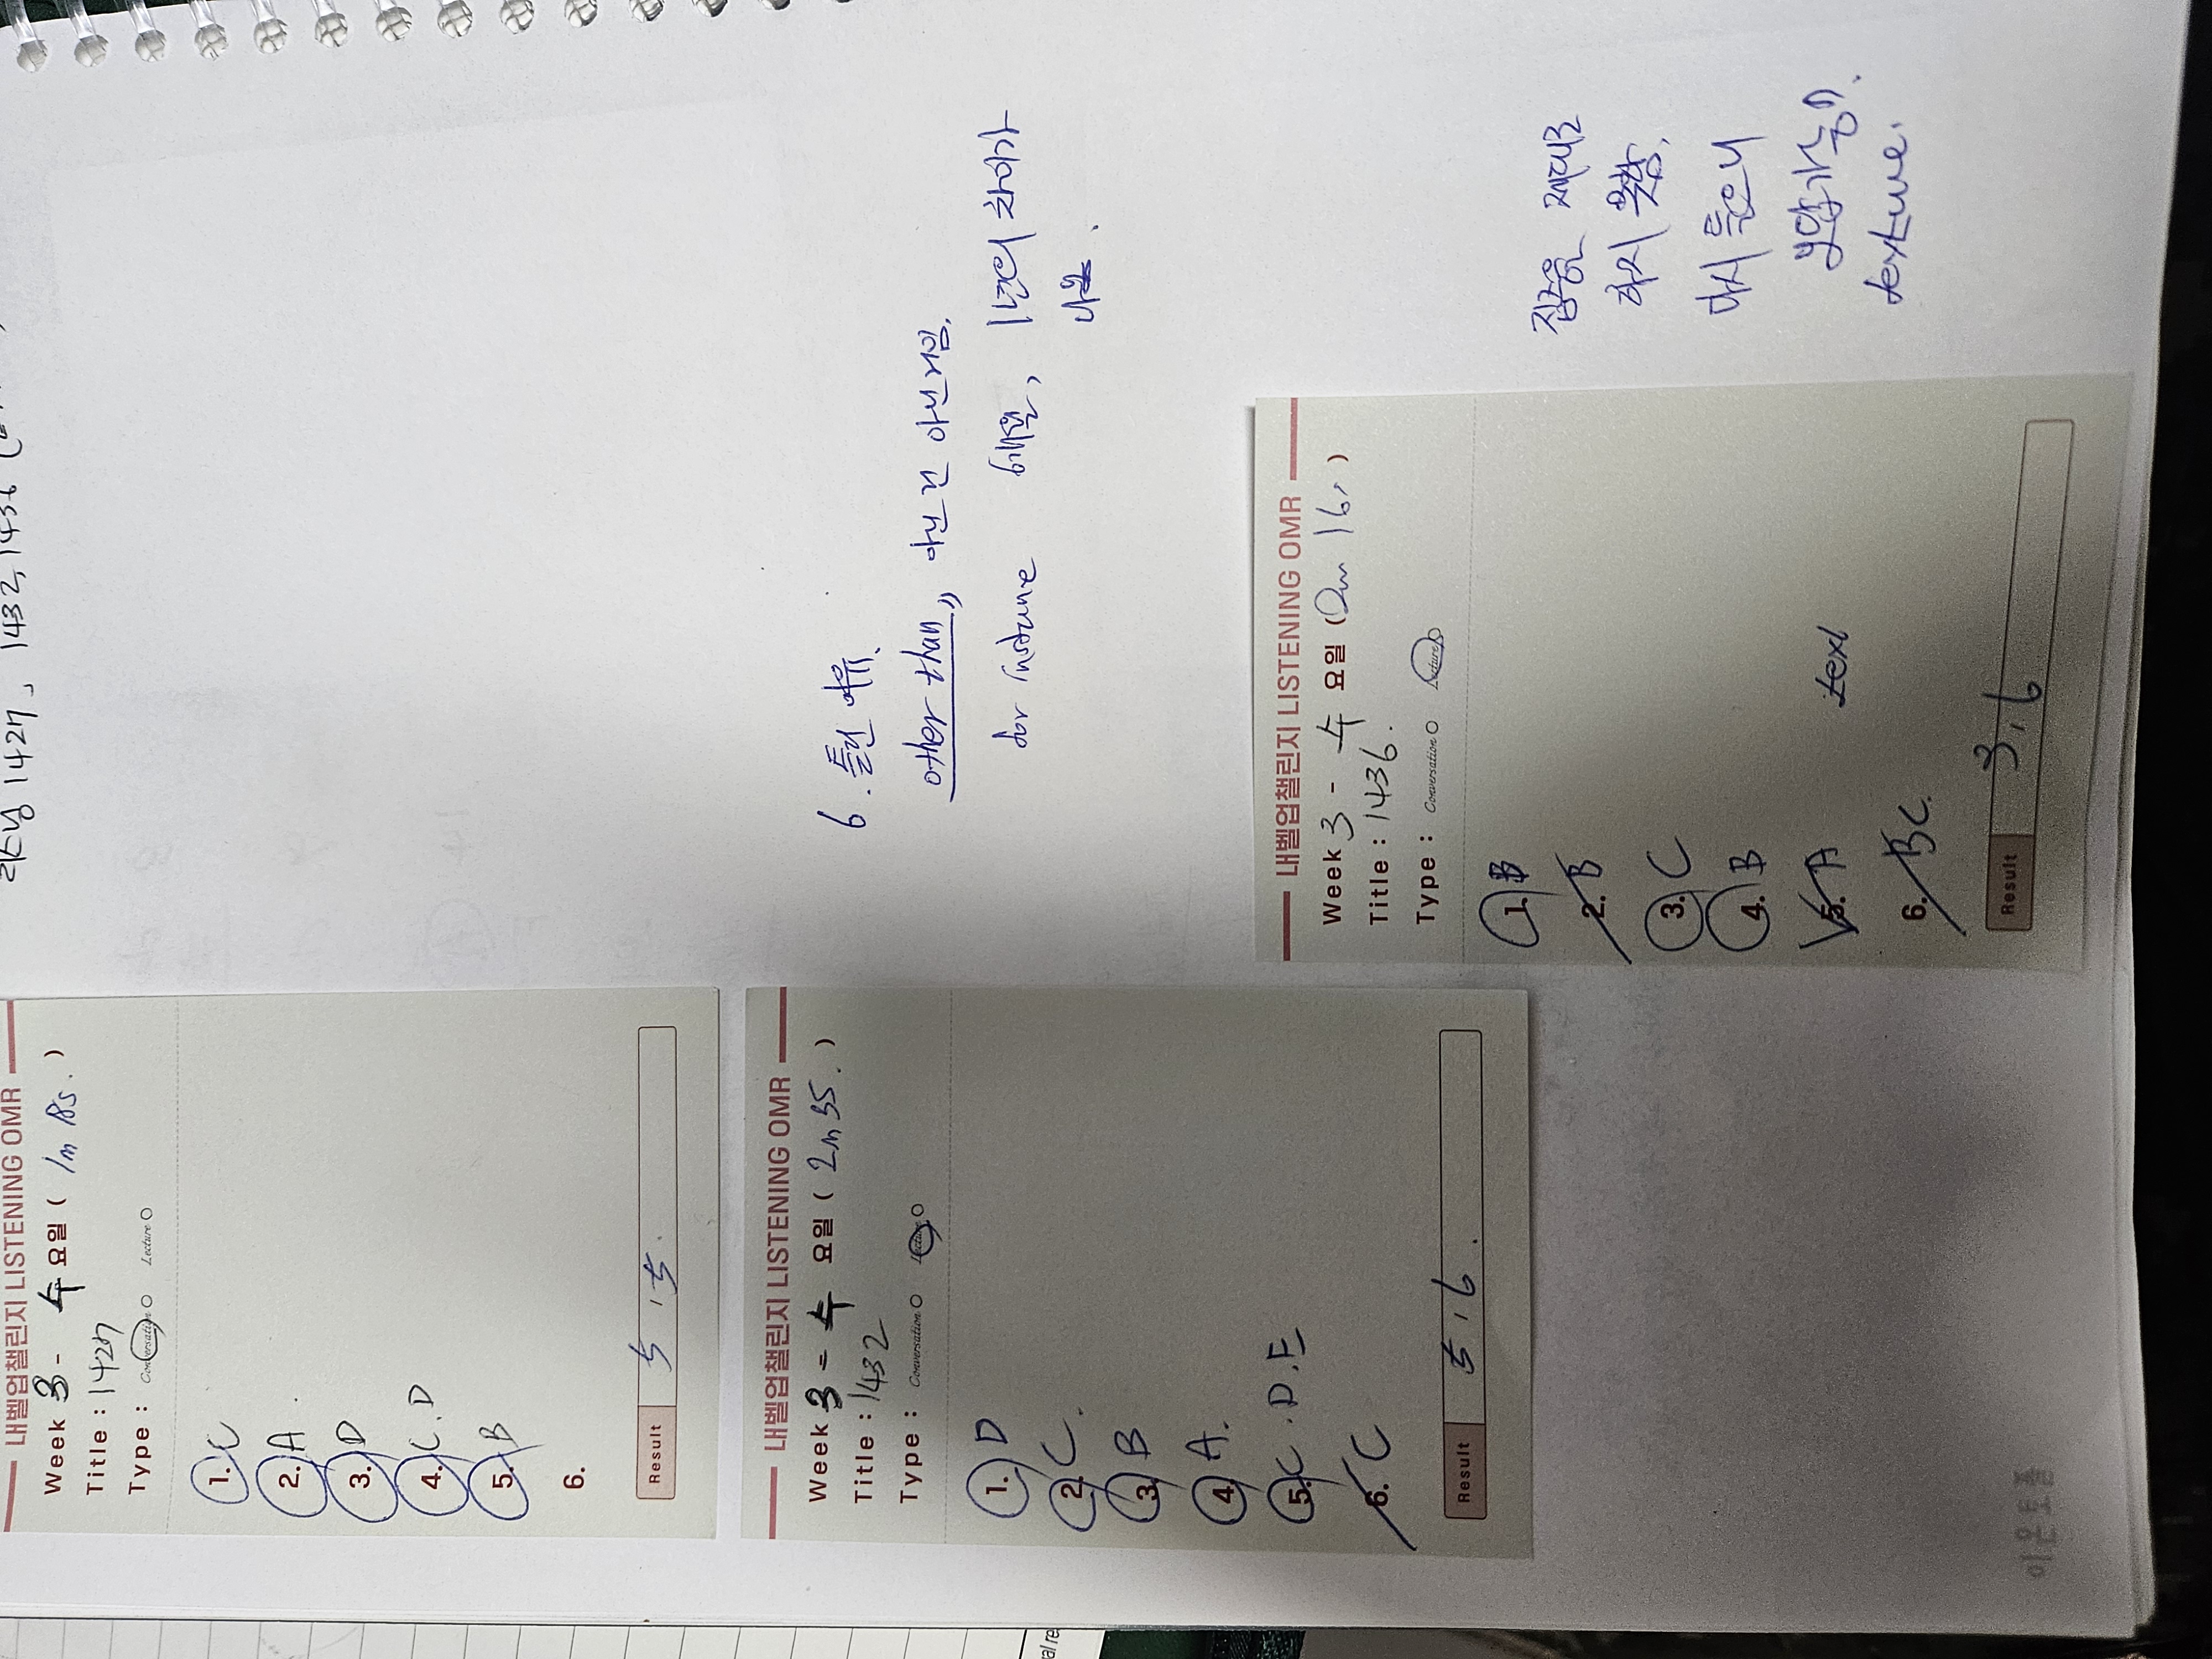 리스닝 1427, 1432, 1436
내벨업챌린지 LISTENING OMR
Week 3 - 수 요일 ( 1m 18s. )
Title : 1427
Type : Conversation Lecture
1. C
2. A.
3. D
4. C. D
5. B
6.
Result 5 . 5.
내벨업챌린지 LISTENING OMR
Week 3 - 수 요일 ( 2m 35. )
Title : 1432
Type : Conversation Lecture
1. D
2. C.
3. B
4. A.
5. C. D. E
6. C
Result 5 . 6 .
6. 틀린 이유.
other than,, 아닌 건 아닌거임.
for instance 6개월, 1년의 차이가
나옴.
내벨업챌린지 LISTENING OMR
Week 3 - 수 요일 ( 2m 16s )
Title : 1436.
Type : Conversation Lecture
1. B
2. B
3. C
4. B
5. A text
6. B C.
Result 3 . 6
집중을 제대로
하지 못함.
다시 들으니
texture.
이온토플